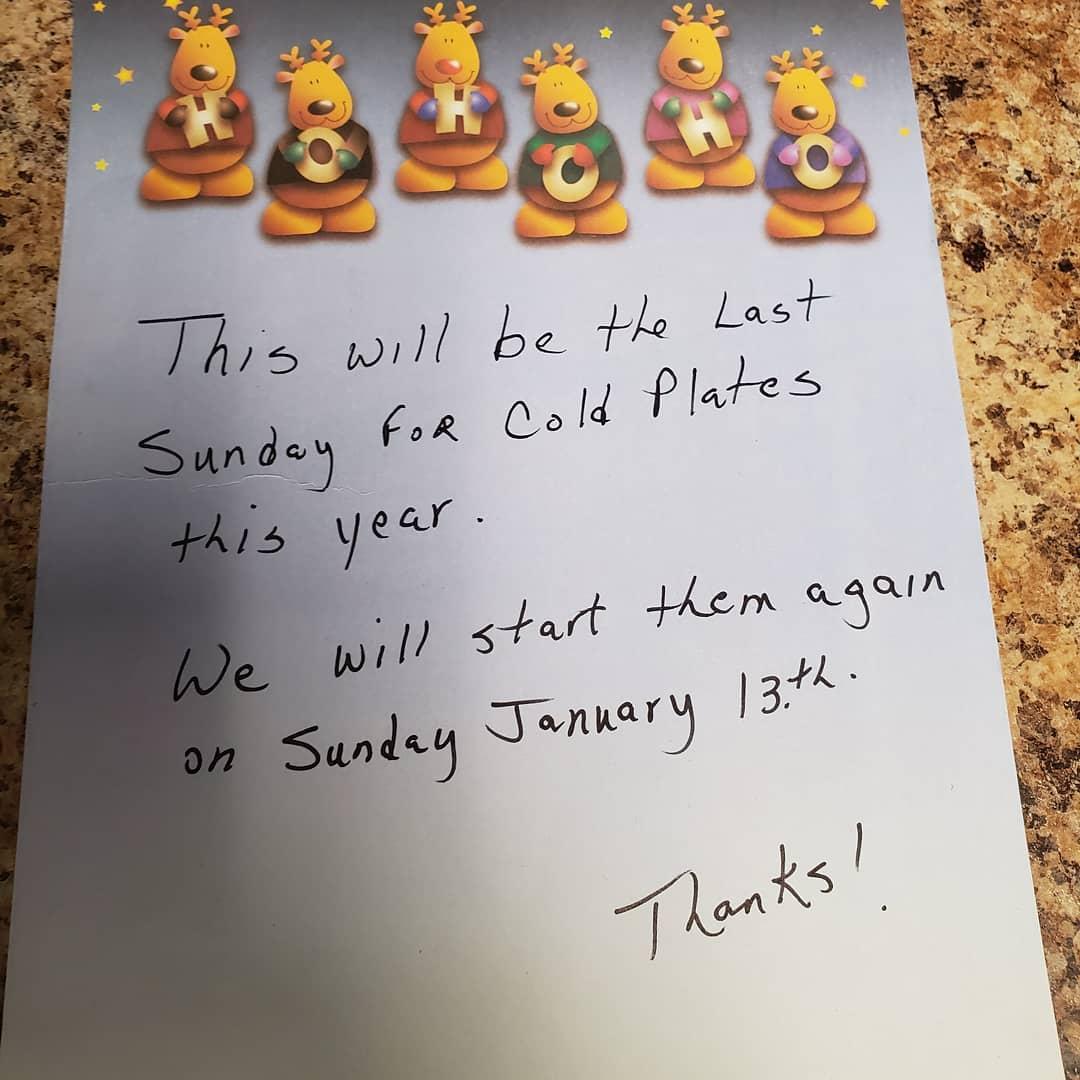 H O H O H O
This will be the Last
Sunday FOR Cold Plates
this year.
We will start them again
on Sunday January 13.th.
Thanks!